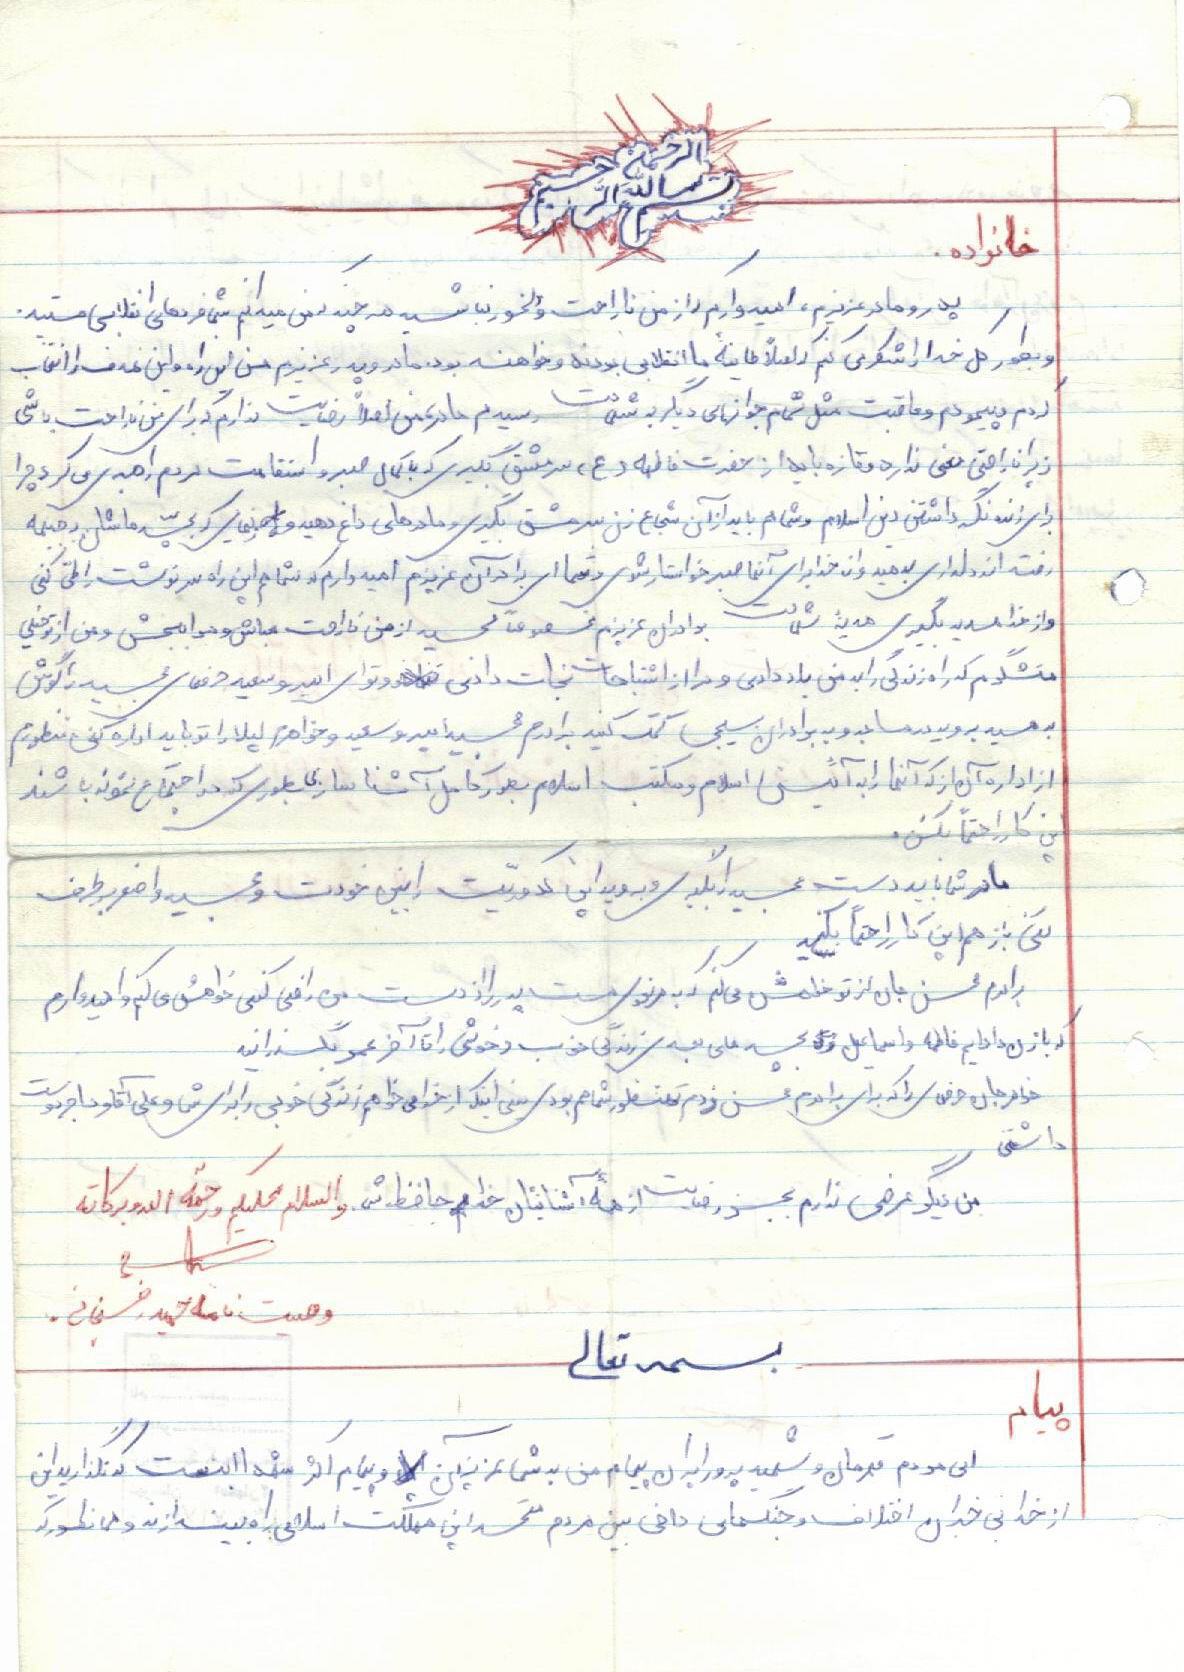 بسم الله الرحمن الرحیم
خانواده.
پدر و مادر عزیزم، امیدوارم که از من ناراحت و دلخور نباشید هر چند من میدانم شما فردهای انقلابی هستید.
و بطور کل خدا را شکر می کنم که اصلاً خانوادهٔ ما انقلابی بودند و خواهند بود. مادر و پدر عزیزم من این راه و این هدف را انتخاب
کردم و پیمودم و عاقبت مثل تمام جوانهای دیگر به شهادت رسیدم مادر من اصلاً رضایت ندارم که برای من ناراحت باشی
زیرا ناراحتی معنی ندارد و تازه باید از حضرت فاطمه (ع) سرمشق بگیری که با کمال صبر و استقامت مردم را رهبری می کرد چرا
برای زنده نگه داشتن دین اسلام و شما هم باید از آن شجاع زن سرمشق بگیری و مادرهای داغ دیده و که بچه هاشان به جبهه
رفته اند دلداری بدهید و از خدا برای آنها صبر خواستار شوی و شما ای برادران عزیزم امیدوارم که شما هم این راه سرنوشت را طی کنی
و از خدا هدیه بگیری هدیهٔ شهادت برادران عزیزم خصوصاً مجید از من ناراحت مباش و مرا ببخش و من از تو خیلی
متشکرم که راه زندگی را به من یاد دادی و مرا از اشتباهات نجات دادی و تو ای امیر و سعید حرفهای مجید را گوش
بدهید بروید در مساجد و به برادران بسیجی کمک کنید برادرم مجید امیر و سعید و خواهرم لیلا را تو باید اداره کنی منظورم
از اداره آن از که آنها را به آئین اسلام و مکتب اسلام بطور کامل آشنا سازی بطوری که در اجتماع نمونه باشند
این کار را حتماً بکن.
مادر شما باید دست مجید را بگیری و بروید این کدورتیت را بین خودت و مجید و اصغر برطرف
کنی باز هم این کار را حتماً بکنید
برادرم محسن جان از تو خواهش می کنم که به هر نوعی هست پدر را از دست من راضی کنی خواهش می کنم و امیدوارم
که با زن دادایم فاطمه و اسماعیل و بچه های بعدی زندگی خوب و خوشی را تا آخر عمر بگذرانید
خواهر جان حرفهای را که برای برادرم محسن زدم منظور شما هم بودی یعنی اینکه از خدا می خواهم زندگی خوبی را برای شما و علی آقا دوست
داشتی
من دیگر عرضی ندارم بجز رضایت از همهٔ آشنایان خدا حافظ. والسلام علیکم و رحمة الله و برکاته
وصیت نامه حمید
بسمه تعالی
پیام
ای مردم قهرمان و شهید پرور ایران پیام من به شما عزیزان و پیام اکثر شهدا اینست که نگذارید این
از خدا بی خبران اختلاف و جنگهای داخلی بین مردم متحد این مملکت اسلامی راه بیندازند و همانطور که